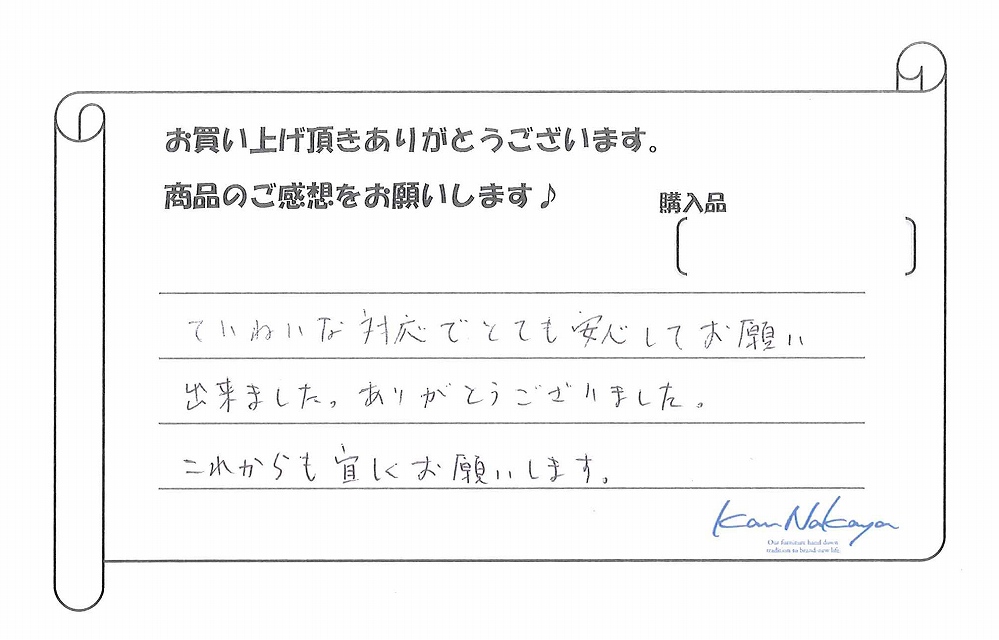 お買い上げ頂きありがとうございます。
商品のご感想をお願いします♪
購入品
ていねいな対応でとても安心してお願い
出来ました。ありがとうございました。
これからも宜しくお願いします。
Kan Nakaya
Our furniture hand down
tradition to brand-new life.